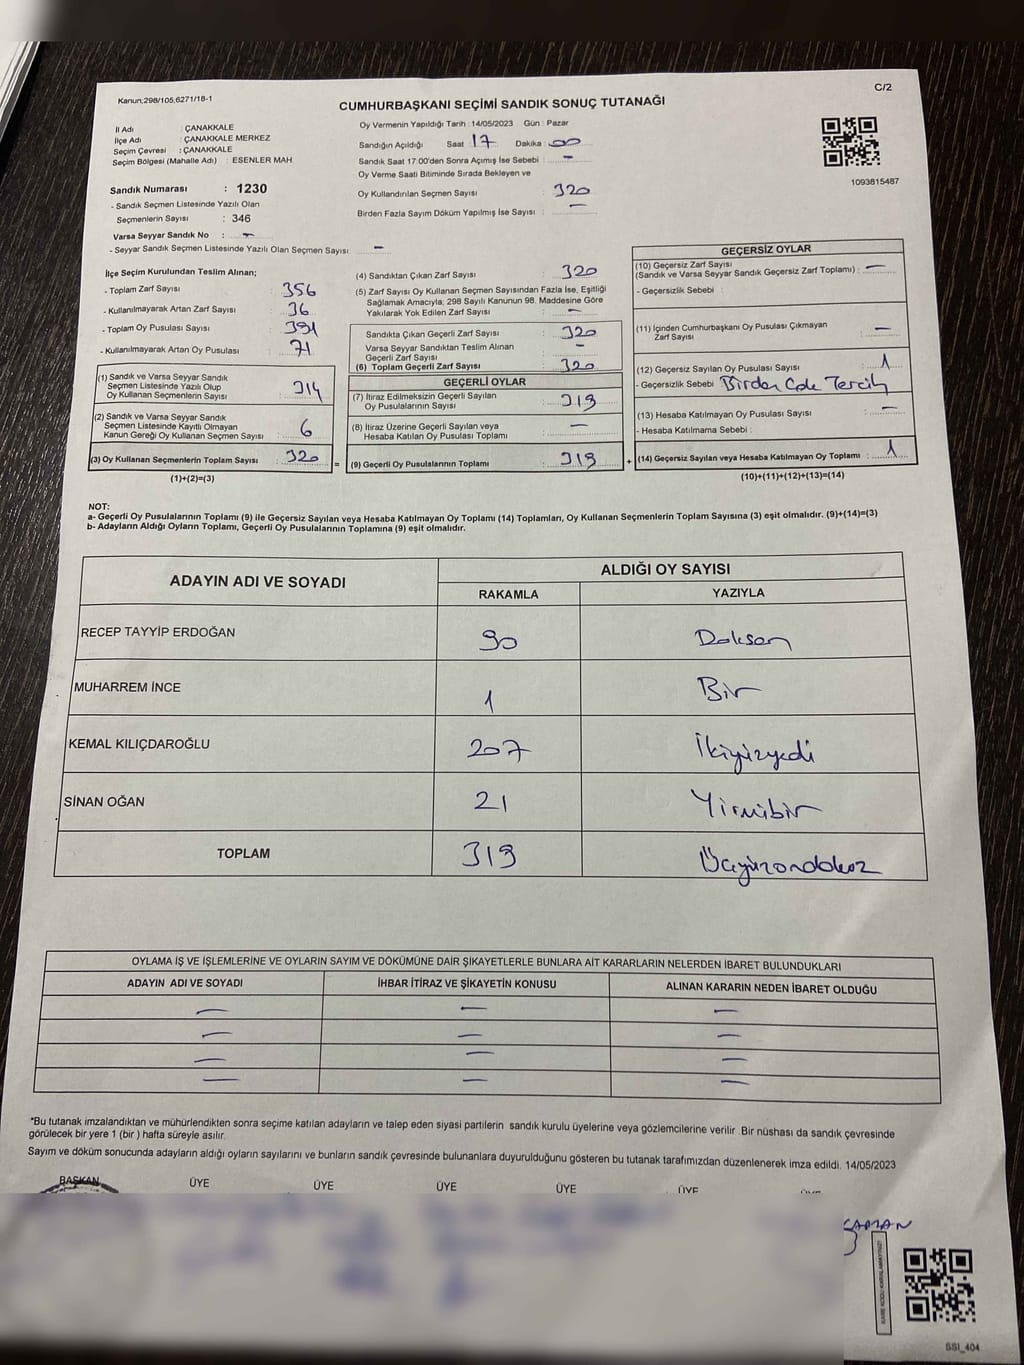 Kanun;298/105,6271/18-1
C/2
CUMHURBAŞKANI SEÇİMİ SANDIK SONUÇ TUTANAĞI
İl Adı : ÇANAKKALE
İlçe Adı : ÇANAKKALE MERKEZ
Seçim Çevresi : ÇANAKKALE
Seçim Bölgesi (Mahalle Adı) : ESENLER MAH
Sandık Numarası : 1230
- Sandık Seçmen Listesinde Yazılı Olan
Seçmenlerin Sayısı : 346
Varsa Seyyar Sandık No : -
- Seyyar Sandık Seçmen Listesinde Yazılı Olan Seçmen Sayısı -
Oy Vermenin Yapıldığı Tarih : 14/05/2023 Gün : Pazar
Sandığın Açıldığı Saat 17 Dakika : 00
Sandık Saat 17:00'den Sonra Açımış İse Sebebi : -
Oy Verme Saati Bitiminde Sırada Bekleyen ve
Oy Kullandırılan Seçmen Sayısı : 320
Birden Fazla Sayım Döküm Yapılmış İse Sayısı : -
1093815487
İlçe Seçim Kurulundan Teslim Alınan;
- Toplam Zarf Sayısı : 356
- Kullanılmayarak Artan Zarf Sayısı : 36
- Toplam Oy Pusulası Sayısı : 391
- Kullanılmayarak Artan Oy Pusulası : 71
(1) Sandık ve Varsa Seyyar Sandık
Seçmen Listesinde Yazılı Olup
Oy Kullanan Seçmenlerin Sayısı : 314
(2) Sandık ve Varsa Seyyar Sandık
Seçmen Listesinde Kayıtlı Olmayan
Kanun Gereği Oy Kullanan Seçmen Sayısı : 6
(3) Oy Kullanan Seçmenlerin Toplam Sayısı : 320
(1)+(2)=(3)
(4) Sandıktan Çıkan Zarf Sayısı : 320
(5) Zarf Sayısı Oy Kullanan Seçmen Sayısından Fazla İse, Eşitliği
Sağlamak Amacıyla; 298 Sayılı Kanunun 98. Maddesine Göre
Yakılarak Yok Edilen Zarf Sayısı : -
Sandıkta Çıkan Geçerli Zarf Sayısı : 320
Varsa Seyyar Sandıktan Teslim Alınan
Geçerli Zarf Sayısı : -
(6) Toplam Geçerli Zarf Sayısı : 320
GEÇERLİ OYLAR
(7) İtiraz Edilmeksizin Geçerli Sayılan
Oy Pusulalarının Sayısı : 319
(8) İtiraz Üzerine Geçerli Sayılan veya
Hesaba Katılan Oy Pusulası Toplamı : -
= (9) Geçerli Oy Pusulalarının Toplamı : 319 +
GEÇERSİZ OYLAR
(10) Geçersiz Zarf Sayısı
(Sandık ve Varsa Seyyar Sandık Geçersiz Zarf Toplamı) : -
- Geçersizlik Sebebi :
(11) İçinden Cumhurbaşkanı Oy Pusulası Çıkmayan
Zarf Sayısı : -
(12) Geçersiz Sayılan Oy Pusulası Sayısı : 1
- Geçersizlik Sebebi Birden Çok Tercih
(13) Hesaba Katılmayan Oy Pusulası Sayısı : -
- Hesaba Katılmama Sebebi :
(14) Geçersiz Sayılan veya Hesaba Katılmayan Oy Toplamı : 1
(10)+(11)+(12)+(13)=(14)
NOT:
a- Geçerli Oy Pusulalarının Toplamı (9) ile Geçersiz Sayılan veya Hesaba Katılmayan Oy Toplamı (14) Toplamları, Oy Kullanan Seçmenlerin Toplam Sayısına (3) eşit olmalıdır. (9)+(14)=(3)
b- Adayların Aldığı Oyların Toplamı, Geçerli Oy Pusulalarının Toplamına (9) eşit olmalıdır.
ADAYIN ADI VE SOYADI ALDIĞI OY SAYISI
RAKAMLA YAZIYLA
RECEP TAYYİP ERDOĞAN 90 Doksan
MUHARREM İNCE 1 Bir
KEMAL KILIÇDAROĞLU 207 İkiyüzyedi
SİNAN OĞAN 21 Yirmibir
TOPLAM 319 Üçyüzondokuz
OYLAMA İŞ VE İŞLEMLERİNE VE OYLARIN SAYIM VE DÖKÜMÜNE DAİR ŞİKAYETLERLE BUNLARA AİT KARARLARIN NELERDEN İBARET BULUNDUKLARI
ADAYIN ADI VE SOYADI İHBAR İTİRAZ VE ŞİKAYETİN KONUSU ALINAN KARARIN NEDEN İBARET OLDUĞU
- - -
- - -
- - -
- - -
*Bu tutanak imzalandıktan ve mühürlendikten sonra seçime katılan adayların ve talep eden siyasi partilerin sandık kurulu üyelerine veya gözlemcilerine verilir. Bir nüshası da sandık çevresinde
görülecek bir yere 1 (bir ) hafta süreyle asılır.
Sayım ve döküm sonucunda adayların aldığı oyların sayılarını ve bunların sandık çevresinde bulunanlara duyurulduğunu gösteren bu tutanak tarafımızdan düzenlenerek imza edildi. 14/05/2023
BAŞKAN ÜYE ÜYE ÜYE ÜYE ÜYE
SSI_404